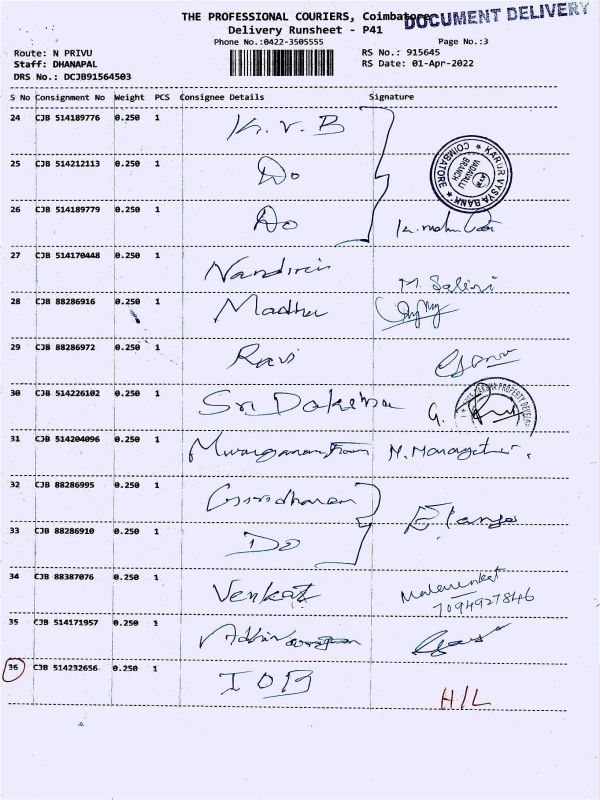 THE PROFESSIONAL COURIERS, Coimbatore
DOCUMENT DELIVERY
Delivery Runsheet - P41
Phone No.:0422-3505555
Page No.:3
Route: N PRIVU
RS No.: 915645
Staff: DHANAPAL
RS Date: 01-Apr-2022
DRS No.: DCJB91564503
S No Consignment No Weight PCS Consignee Details Signature
24 CJB 514189776 0.250 1 K.V.B
KARUR VYSYA BANK COIMBATORE
VADAVALLI BRANCH
25 CJB 514212113 0.250 1 Do
26 CJB 514189779 0.250 1 Do
27 CJB 514170448 0.250 1 Nandini M. Salini
28 CJB 88286916 0.250 1 Madhu
29 CJB 88286972 0.250 1 Ravi
30 CJB 514226102 0.250 1 Sri Daksha G.
31 CJB 514204096 0.250 1
32 CJB 88286995 0.250 1 Giridharan Elango
33 CJB 88286910 0.250 1 Do
34 CJB 88387076 0.250 1 Venkat
7094927846
35 CJB 514171957 0.250 1
36 CJB 514232656 0.250 1 IOB H/L